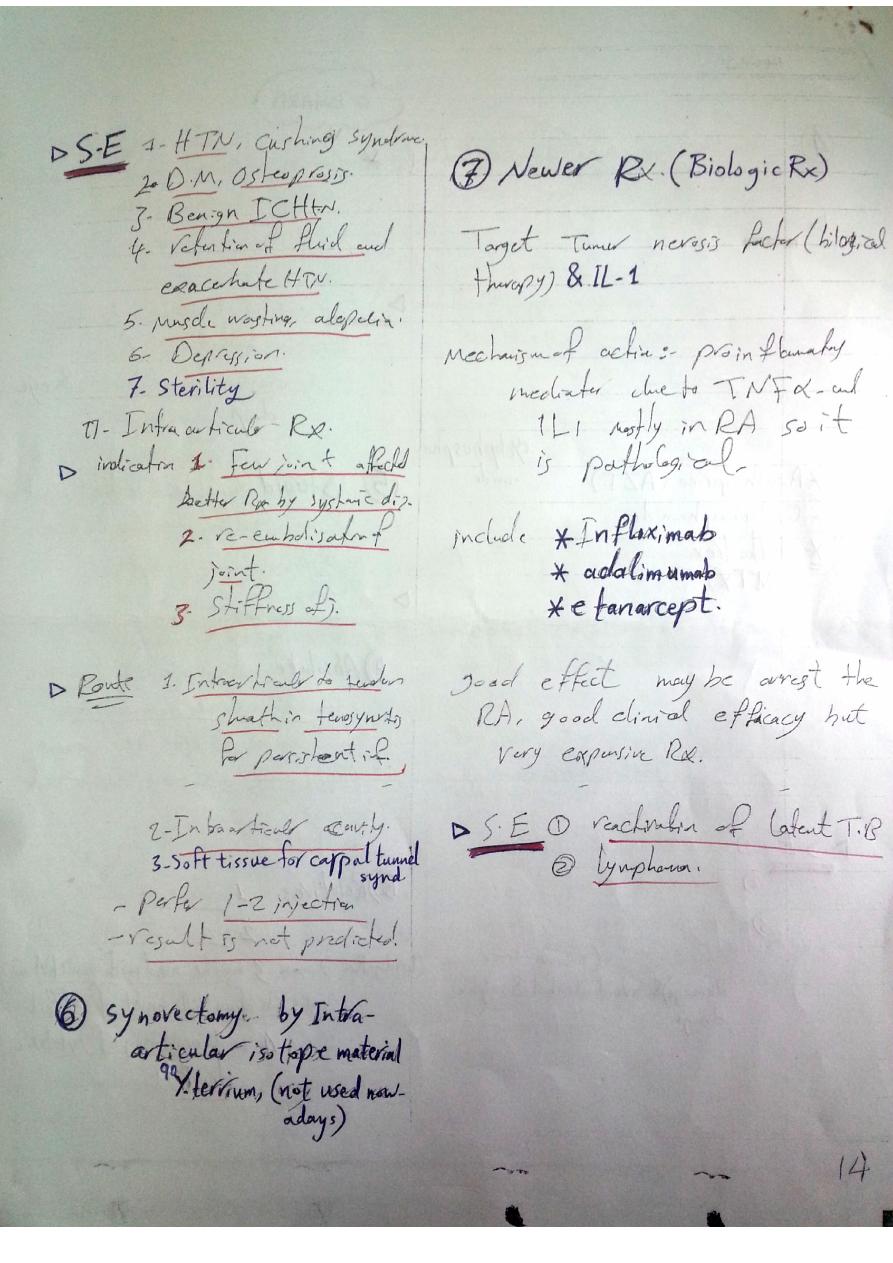 S.E 1- HTN, Cushing syndrome
2- D.M, Osteoprosis.
3- Benign ICHTN.
4. retention of fluid and
exacerbate HTN.
5. Muscle wasting, alopecia.
6- Depression.
7- Sterility
II- Intra articular Rx.
indication 1- Few joint affected
better Rx by systmic dis.
2- re-embolisation of
joint.
3- Stiffness of j.
Route 1. Intraarticular to tendon
sheath in tenosynvitis
for persistent inf.
2- Intraarticular cavity.
3-Soft tissue for carpal tunnel
synd
- Perfer 1-2 injection
- result is not predicted.
6 synovectomy by Intra-
articular isotope material
90 Y.terrium, (not used now-
adays)
7 Newer Rx. (Biologic Rx)
Target Tumer nerosis factor (bilogical
therapy) & IL-1
Mechanism of action :- proinflamatory
mediater due to TNFα and
IL1 mostly in RA so it
is pathological.
include * Infloximab
* adalimumab
* etanarcept.
good effect may be arrest the
RA, good clinical efficacy but
very expensive Rx.
S.E 1 reactivation of latent T.B
2 lymphoma.
14